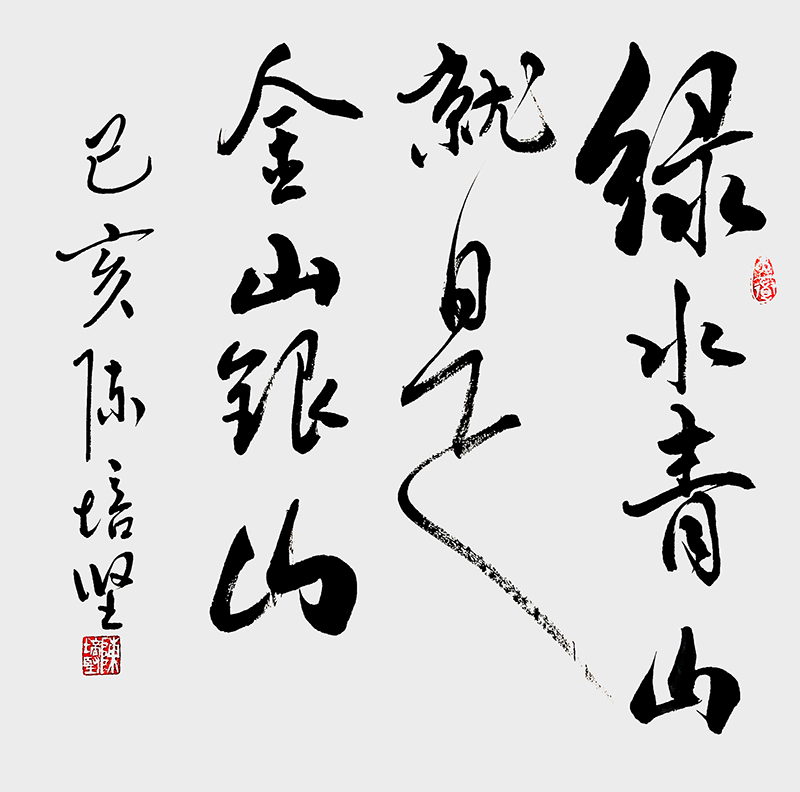 绿水青山
就是
金山银山
己亥陈培坚